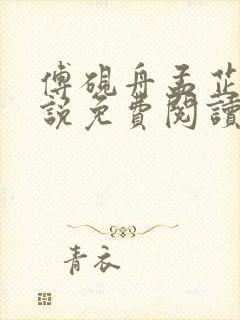 傅硯舟孟芷
說免費閱讀
青衣